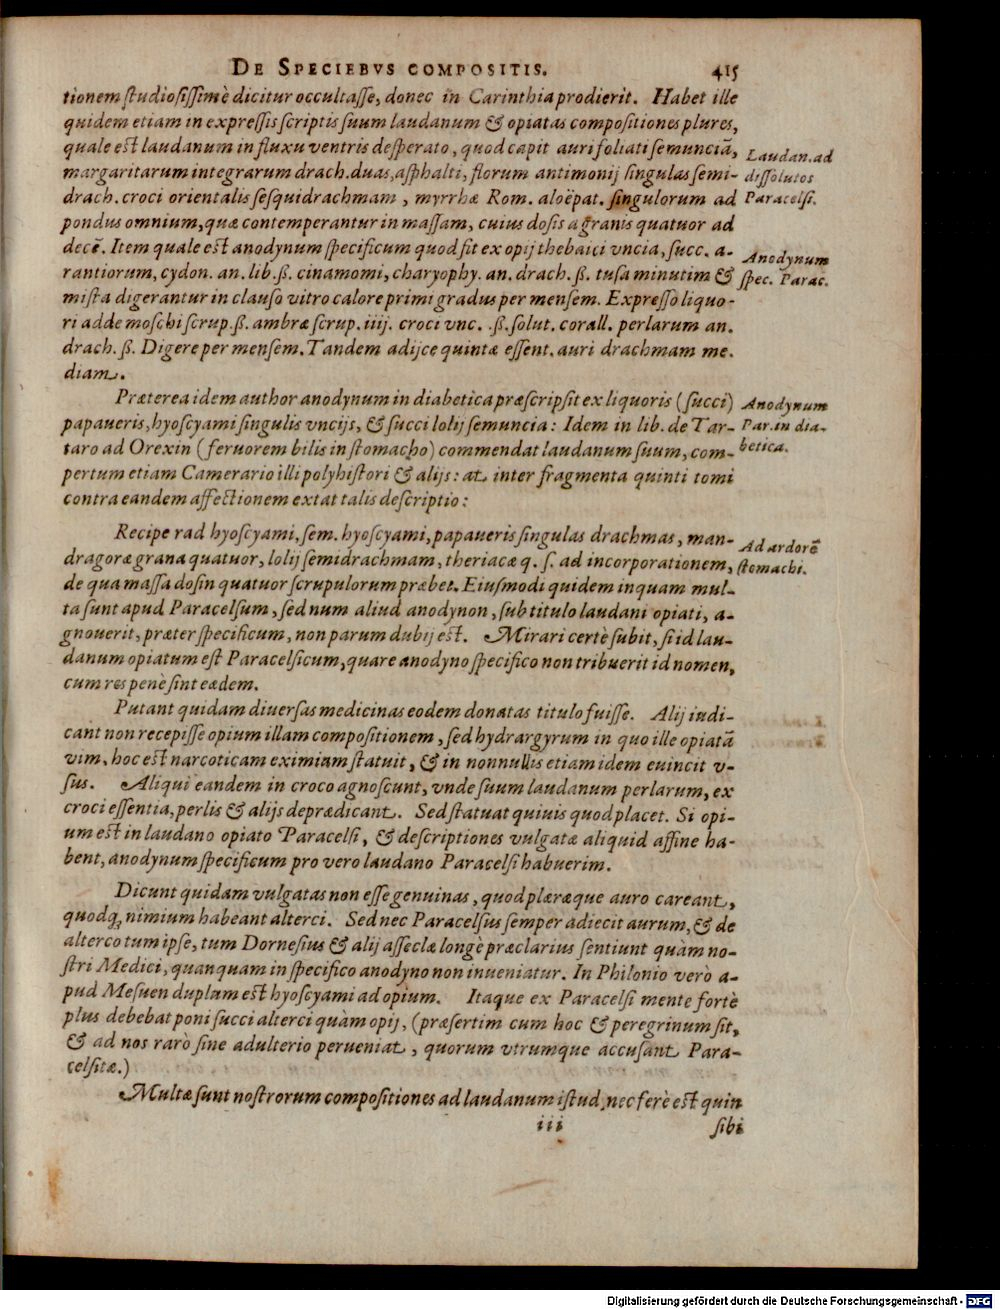 DE SPECIEBVS COMPOSITIS. 415
tionem ſtudioſiſſimè dicitur occultaſſe, donec in Carinthia prodierit. Habet ille
quidem etiam in expreſſis ſcriptis ſuum laudanum & opiatas compoſitiones plures,
quale eſt laudanum in fluxu ventris deſperato, quod capit auri foliati ſemunciā,
margaritarum integrarum drach. duas, aſphalti, florum antimonij ſingulas ſemi-
drach. croci orientalis ſeſquidrachmam, myrrhæ Rom. aloëpat. ſingulorum ad
pondus omnium, quæ contemperantur in maſſam, cuius doſis a granis quatuor ad
decē. Item quale eſt anodynum ſpecificum quod fit ex opij thebaici vncia, ſucc. a-
rantiorum, cydon. an. lib. ß. cinamomi, charyophy. an. drach. ß. tuſa minutim &
miſta digerantur in clauſo vitro calore primi gradus per mensem. Expreſſo liquo-
ri adde moſchi ſcrup. ß. ambræ ſcrup. iiij. croci vnc. .ß. ſolut. corall. perlarum an.
drach. ß. Digere per menſem. Tandem adijce quintæ eſſent. auri drachmam me.
diam.
Laudan. ad
diſſolutos
Paracelſi.
Anodynum
ſpec. Parac.
Præterea idem author anodynum in diabetica præſcripſit ex liquoris (ſucci)
papaueris, hyoſcyami ſingulis vncijs, & ſucci lolij ſemuncia: Idem in lib. de Tar-
taro ad Orexin (feruorem bilis in ſtomacho) commendat laudanum ſuum, com-
pertum etiam Camerario illi polyhiſtori & alijs: at inter fragmenta quinti tomi
contra eandem affectionem extat talis deſcriptio:
Anodynum
Par. in dia-
betica.
Recipe rad hyoſcyami, ſem. hyoſcyami, papaueris ſingulas drachmas, man-
dragoræ grana quatuor, lolij ſemidrachmam, theriacæ q. ſ. ad incorporationem,
de qua maſſa doſin quatuor ſcrupulorum præbet. Eiuſmodi quidem inquam mul-
ta ſunt apud Paracelſum, ſed num aliud anodynon, ſub titulo laudani opiati, a-
gnouerit, præter ſpecificum, non parum dubij eſt. Mirari certè ſubit, ſi id lau-
danum opiatum eſt Paracelſicum, quare anodyno ſpecifico non tribuerit id nomen,
cum res penè ſint eædem.
Ad ardorē
ſtomachi.
Putant quidam diuerſas medicinas eodem donatas titulo fuiſſe. Alij iudi-
cant non recepiſſe opium illam compoſitionem, ſed hydrargyrum in quo ille opiatā
vim, hoc eſt narcoticam eximiam ſtatuit, & in nonnullis etiam idem euincit v-
ſus. Aliqui eandem in croco agnoſcunt, vnde ſuum laudanum perlarum, ex
croci eſſentia, perlis & alijs deprædicant. Sed ſtatuat quiuis quod placet. Si opi-
um eſt in laudano opiato Paracelſi, & deſcriptiones vulgatæ aliquid affine ha-
bent, anodynum ſpecificum pro vero laudano Paracelſi habuerim.
Dicunt quidam vulgatas non eſſe genuinas, quod plæræque auro careant,
quodq́; nimium habeant alterci. Sed nec Paracelſus ſemper adiecit aurum, & de
alterco tum ipſe, tum Dorneſius & alij aſſeclæ longè præclarius ſentiunt quàm no-
ſtri Medici, quanquam in ſpecifico anodyno non inueniatur. In Philonio verò a-
pud Meſuen duplum eſt hyoſcyami ad opium. Itaque ex Paracelſi mente fortè
plus debebat poni ſucci alterci quàm opij, (præſertim cum hoc & peregrinum ſit,
& ad nos rarò ſine adulterio perueniat, quorum vtrumque accuſant Para-
celſitæ.)
Multæ ſunt noſtrorum compoſitiones ad laudanum iſtud, nec ferè eſt quin
iii ſibi
Digitalisierung gefördert durch die Deutsche Forschungsgemeinschaft - DFG